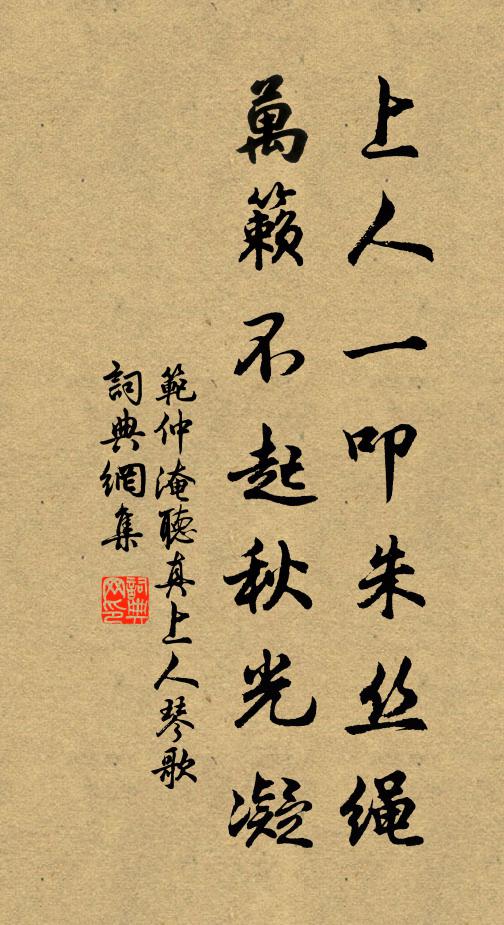 上人一叩朱丝绳
萬籟不起秋光凝
範仲淹聽真上人琴歌
詞典網集
詞典
网印